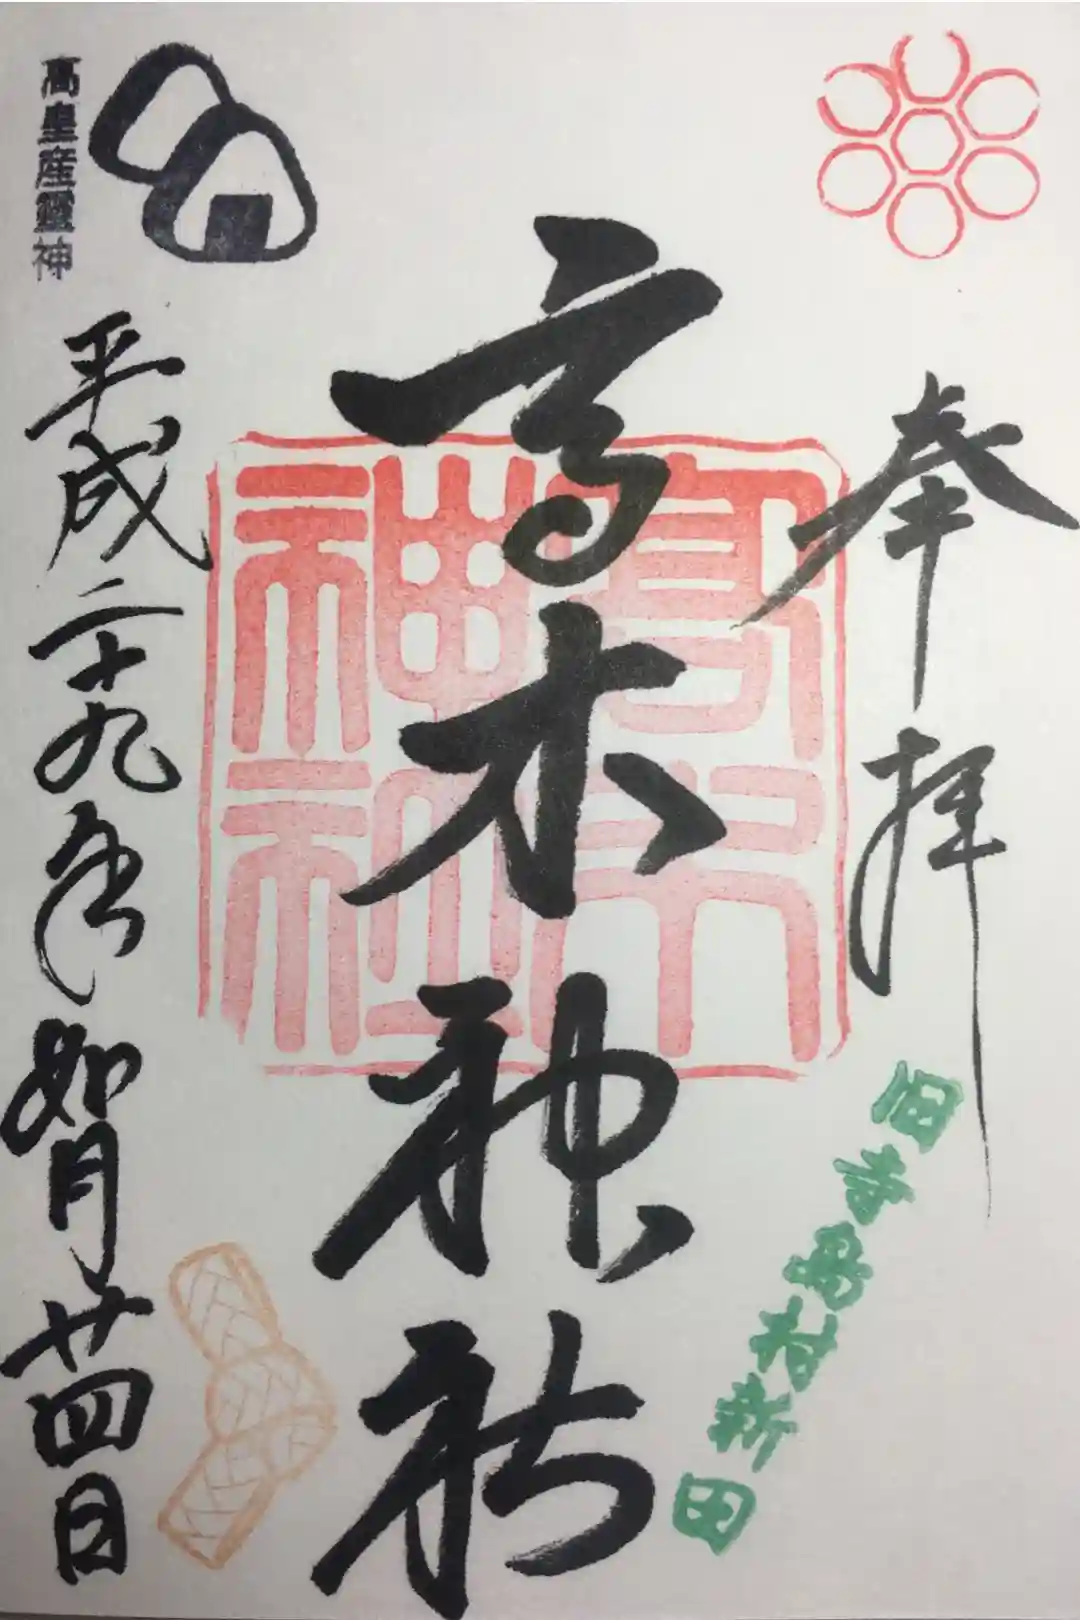 奉拝
旧寺島村新田
高木神社
高木神社
高皇産靈神
平成二十九年如月廿四日